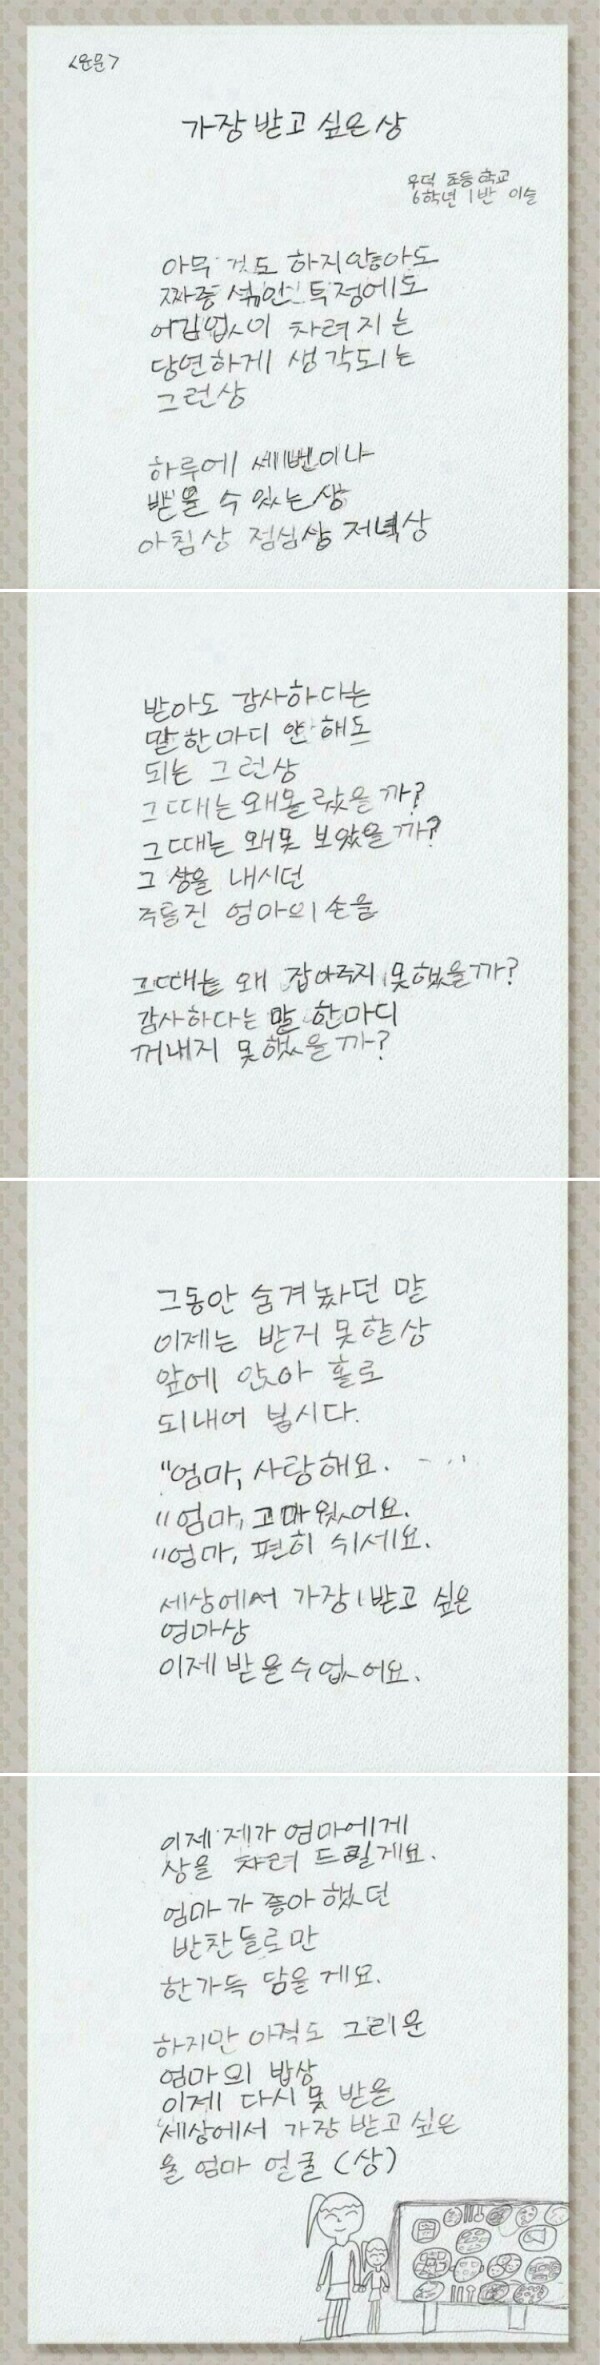 <운문>
가장 받고 싶은 상
우덕 초등학교
6학년 1반 이슬
아무 것도 하지않아도
짜증 섞인 투정에도
어김없이 차려지는
당연하게 생각되는
그런상
하루에 세번이나
받을 수 있는 상
아침상 점심상 저녁상
받아도 감사하다는
말 한마디 안 해도
되는 그런상
그때는 왜몰랐을까?
그때는 왜못 보았을까?
그 상을 내시던
주름진 엄마의 손을
그때는 왜 잡아주지 못했을까?
감사하다는 말 한마디
꺼내지 못했을까?
그동안 숨겨놨던 말
이제는 받지 못할상
앞에 앉아 홀로
되내어 봅시다.
"엄마, 사랑해요.
"엄마, 고마웠어요.
"엄마, 편히 쉬세요.
세상에서 가장 받고 싶은
엄마상
이제 받을수없어요.
이제 제가 엄마에게
상을 차려 드릴게요.
엄마가 좋아했던
반찬들로만
한가득 담을게요.
하지만 아직도 그리운
엄마의 밥상
이제 다시 못 받을
세상에서 가장 받고 싶은
울 엄마 얼굴 (상)